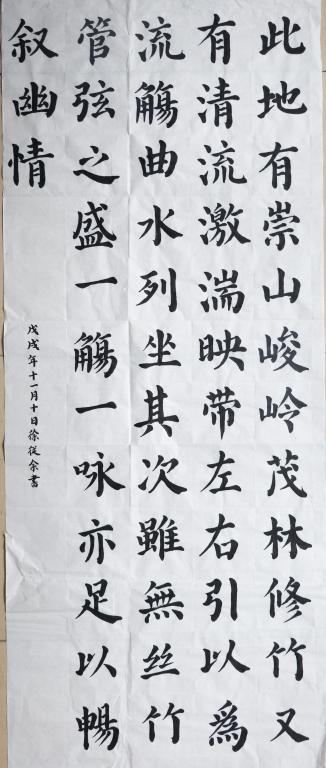 此地有崇山峻岭茂林修竹又
有清流激湍映带左右引以為
流觴曲水列坐其次雖無丝竹
管弦之盛一觴一咏亦足以暢
叙幽情
戊戌年十一月十日徐從余書